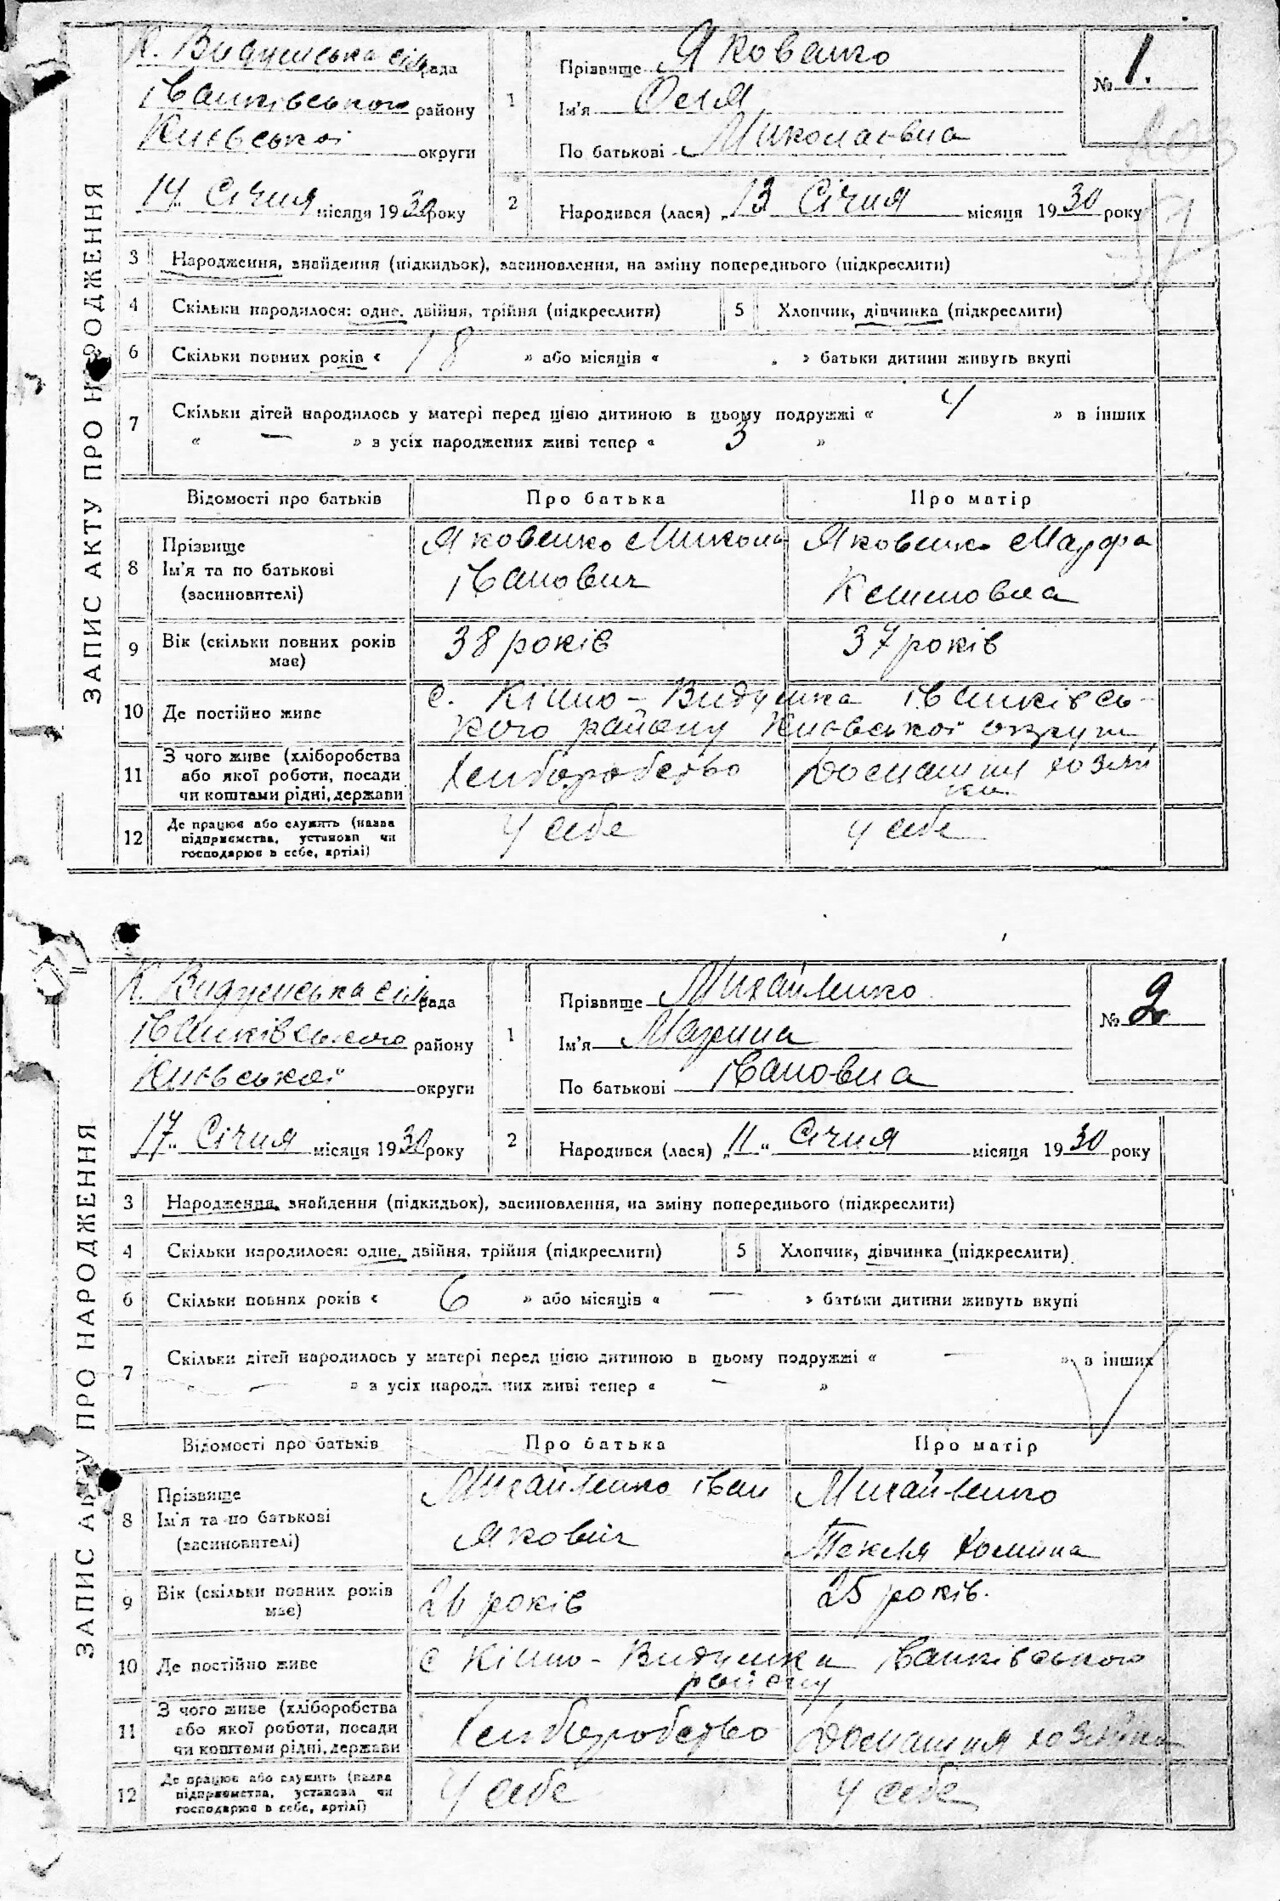 ЗАПИС АКТУ ПРО НАРОДЖЕННЯ
К. Видумська сільрада
Іванківського району
Київської округи
14 Січня місяця 1930 року
1 Прізвище Яковенко
Ім'я Оля
По батькові Миколаєвна
№ 1.
2 Народився (лася) 13 Січня місяця 1930 року
3 Народження, знайдення (підкидьок), засиновлення, на зміну попереднього (підкреслити)
4 Скільки народилося: одне, двійня, трійня (підкреслити) 5 Хлопчик, дівчинка (підкреслити)
6 Скільки повних років « 18 » або місяців « » батьки дитини живуть вкупі
7 Скільки дітей народилось у матері перед цією дитиною в цьому подружжі « 4 » в інших
« — » з усіх народжених живі тепер « 3 »
Відомості про батьків Про батька Про матір
8 Прізвище
Ім'я та по батькові
(засиновителі)
Яковенко Микола
Іванович
Яковенко Марфа
9 Вік (скільки повних років має) 38 років 37 років
10 Де постійно живе с. Кішно-Видумка Іванківсь-
кого району Київської округи
11 З чого живе (хліборобства
або якої роботи, посади
чи коштами рідні, держави
Хліборобство
Домашня хозяйка
12 Де працює або служить (назва
підприємства, установи чи
господарює в себе, артілі)
У себе У себе
ЗАПИС АКТУ ПРО НАРОДЖЕННЯ
К. Видумська сільрада
Іванківського району
Київської округи
17 Січня місяця 1930 року
1 Прізвище Михайленко
Ім'я Марина
По батькові Івановна
№ 2
2 Народився (лася) „11“ Січня місяця 1930 року
3 Народження, знайдення (підкидьок), засиновлення, на зміну попереднього (підкреслити)
4 Скільки народилося: одне, двійня, трійня (підкреслити) 5 Хлопчик, дівчинка (підкреслити)
6 Скільки повних років « 6 » або місяців « — » батьки дитини живуть вкупі
7 Скільки дітей народилось у матері перед цією дитиною в цьому подружжі « — » в інших
« — » з усіх народжених живі тепер « — »
Відомості про батьків Про батька Про матір
8 Прізвище
Ім'я та по батькові
(засиновителі)
Михайленко Іван
Якович
Михайленко
Текля Хомина
9 Вік (скільки повних років має) 26 років 25 років.
10 Де постійно живе с Кішно-Видумка Іванківського
району
11 З чого живе (хліборобства
або якої роботи, посади
чи коштами рідні, держави
Хліборобство Домашня хозяйка
12 Де працює або служить (назва
підприємства, установи чи
господарює в себе, артілі)
У себе У себе